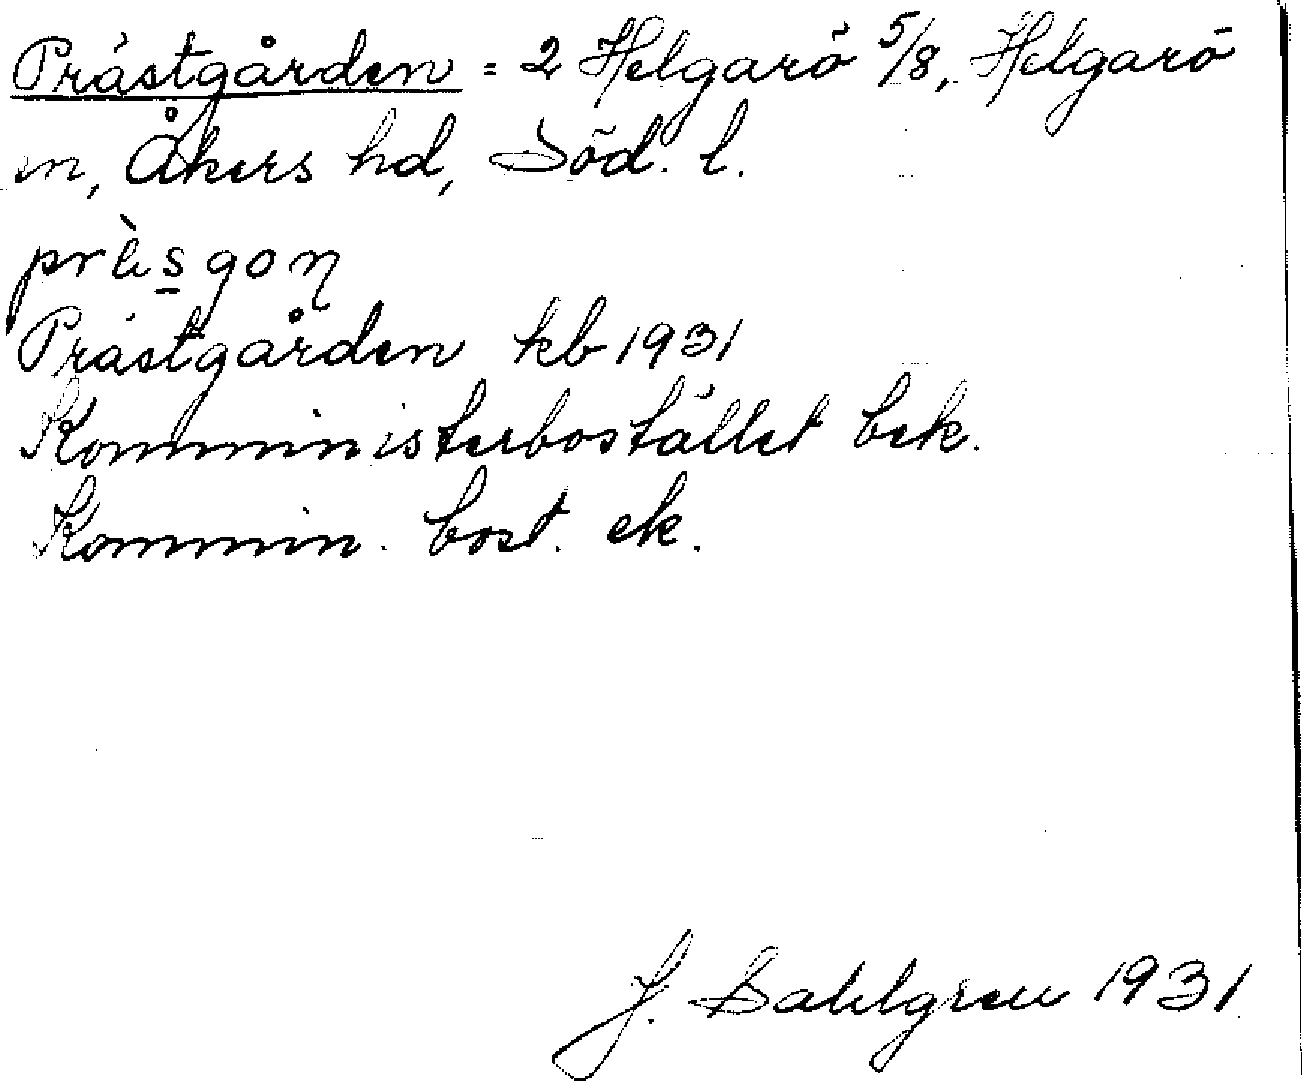 Prästgården = 2 Helgarö 5/8, Helgarö
sn, Åkers hd, Söd. l.
prä̀s̲goŋ
Prästgården kb 1931
Komministerbostället bek.
Kommin. bost. ek.
J. Dahlgren 1931